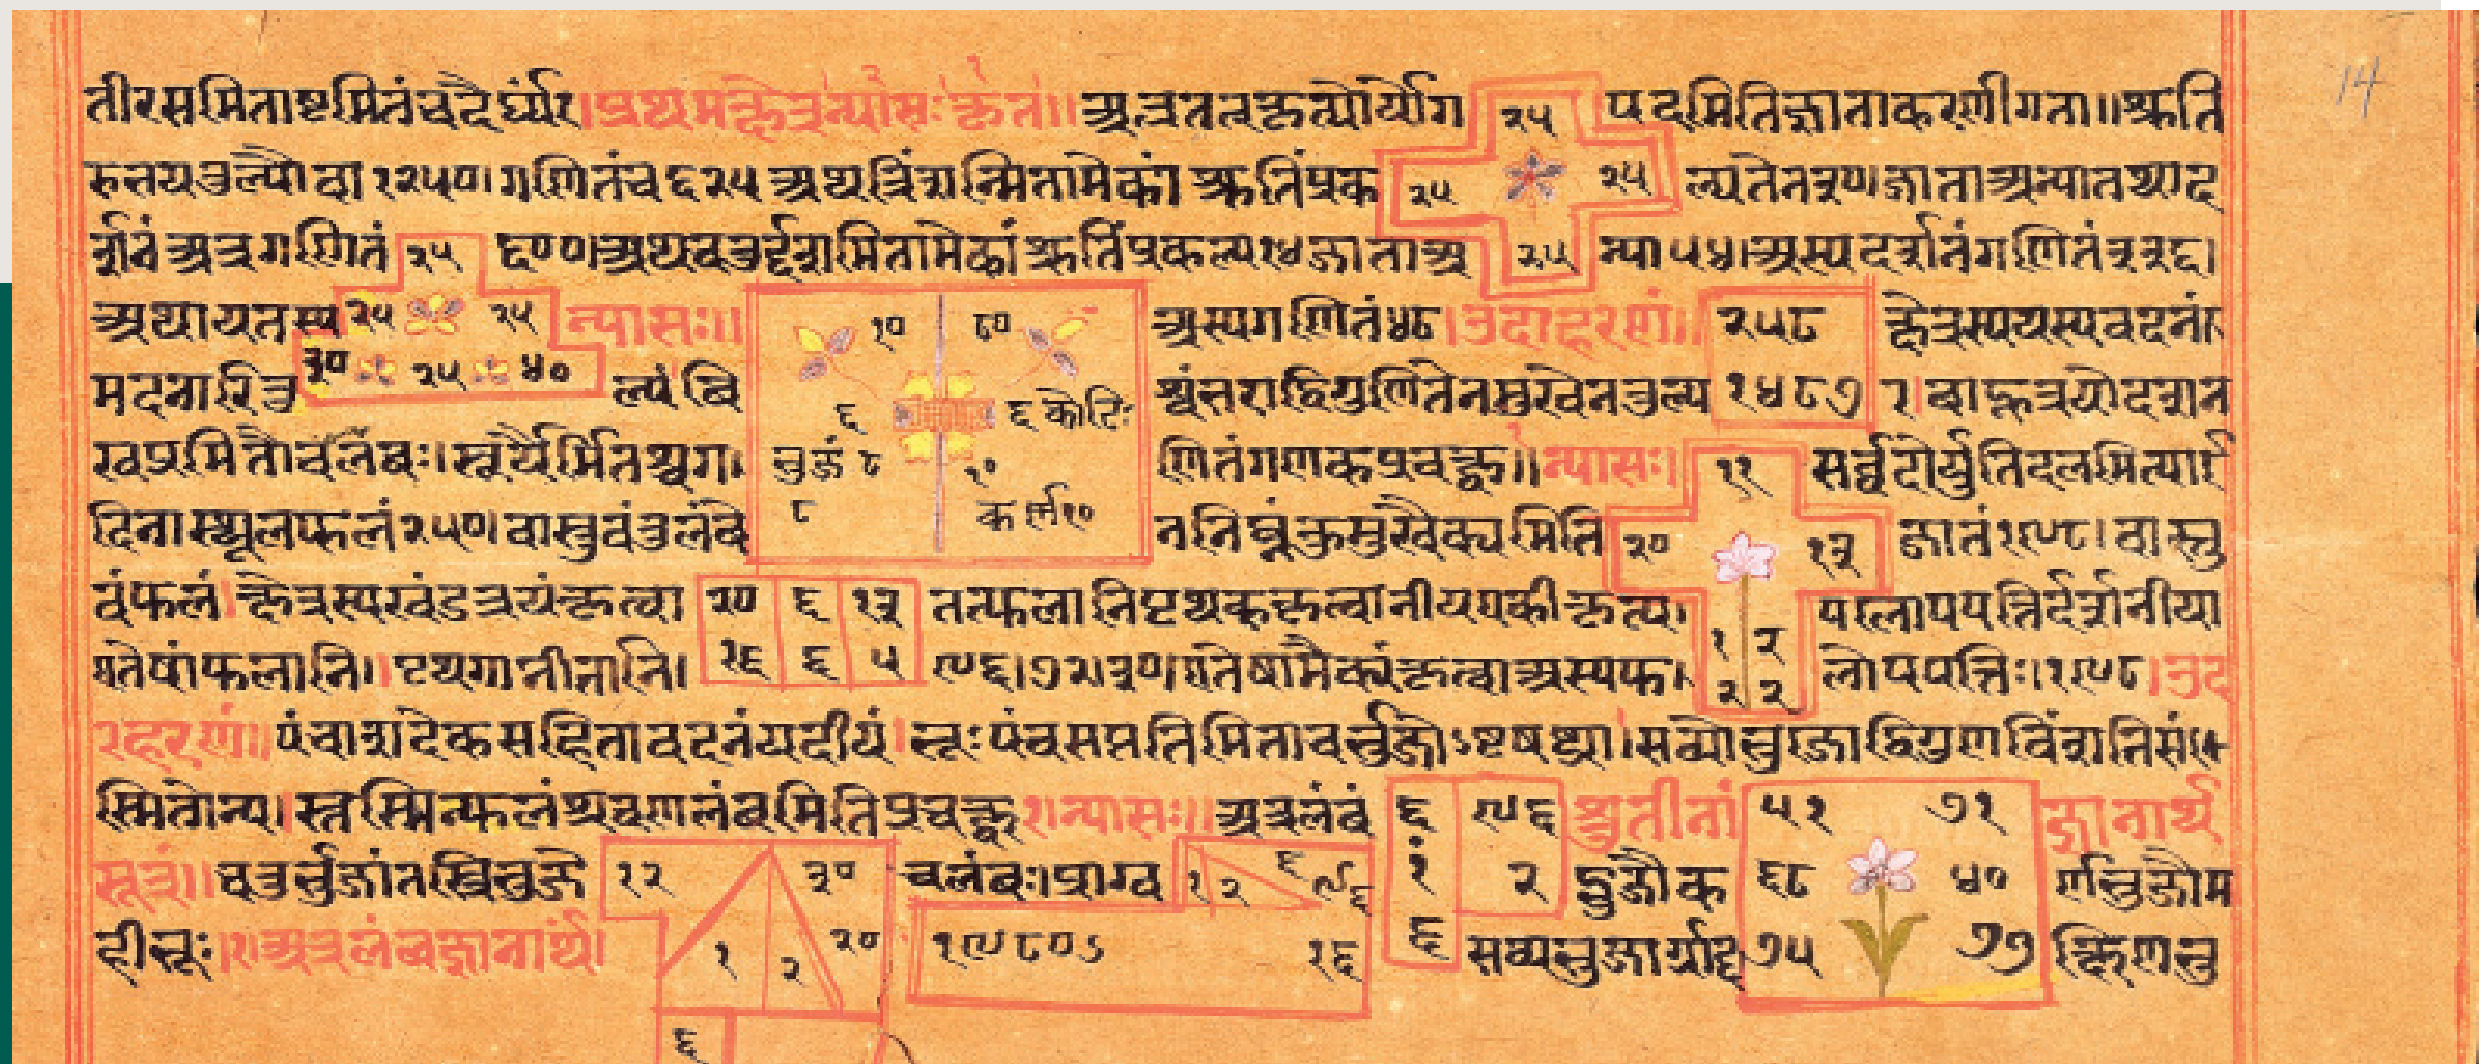 तीरसमिताष्टमितंचदैर्घ्यं।प्रथमक्षेत्रन्यासः॥अत्रतत्कृत्योर्योग २५ पदमितिजाताकरणीगता॥श्रुति
१२५०।गणितंच६२५ अथत्रिंशन्मितामेकां श्रुतिंप्रक २५ २५ ल्पतेतत्र३०।जाताअन्यातथाद
र्शनं अत्रगणितं २५ ६००।अथचतुर्द्दशमितामेकांश्रुतिंप्रकल्प१४जाताअ २५ न्या५४।अस्यदर्शनंगणितं३३६।
अथायतस्य २५ २५ न्यासः॥ १० ८० अस्यगणितं४८।उदाहरणं॥ २५८ क्षेत्रस्ययस्यवदनं
मदनारितु ३० २५ ४० ल्यं वि ६ ६ कोटिः श्वंत्तराद्विगुणितेनमुखेनतुल्य १४८७ । बाहूत्रयोदशन
खप्रमितौचलंबः।सूर्यैर्मितश्चग। भुजं ८ १० णितंगणकप्रवक्ष्व॥न्यासः। ११ सर्व्वदोर्युतिदलमित्यार
दिनास्थूलफलं२५०।वास्तुवंतुलंबे ८ कर्ण१० ननिघ्नंकुमुखैक्यमिति २० १३ जातं१९८।वास्तु
वंफलं।क्षेत्रस्यखंडत्रयंकृत्वा २० ६ १३ तत्फलानिपृथक्कृत्वानीयएकीकृत्य। फलोपपत्तिर्दर्शनीया
एतेषांफलानि॥पृथगानीतानि। १६ ६ ५ ९६।७२।३०।एतेषामैक्यंकृत्वाअस्यफ। १ २ २ २ लोपपत्तिः।१९८।उद
रहरणं॥पंचाशदेकसहितावदनंयदीयं।भूःपंचसप्ततिमिताचभुजोऽष्टषष्ट्या।सव्योभुजोद्विगुणविंशतिसं
स्मितोन्य।स्तस्मिन्फलंश्रवणलंबमितिप्रचक्ष्व१।न्यासः॥अत्रलंबं ६ ९६ श्रुतीनां ५१ ७१ ज्ञानार्थ
सूत्रं॥चतुर्भुजांतस्त्रिभुजे १२ ३० चलंबः।प्राग्व १ २ ६ ९६ १ २ द्भुजौक ६८ ४० र्णभुजौम
हीभूः।१।अत्रलंबज्ञानार्थ। १ २ २० १९८०ऽ १६ ६ सव्यभुजार्ग्राद् ७५ ७७ क्षिणभु
६